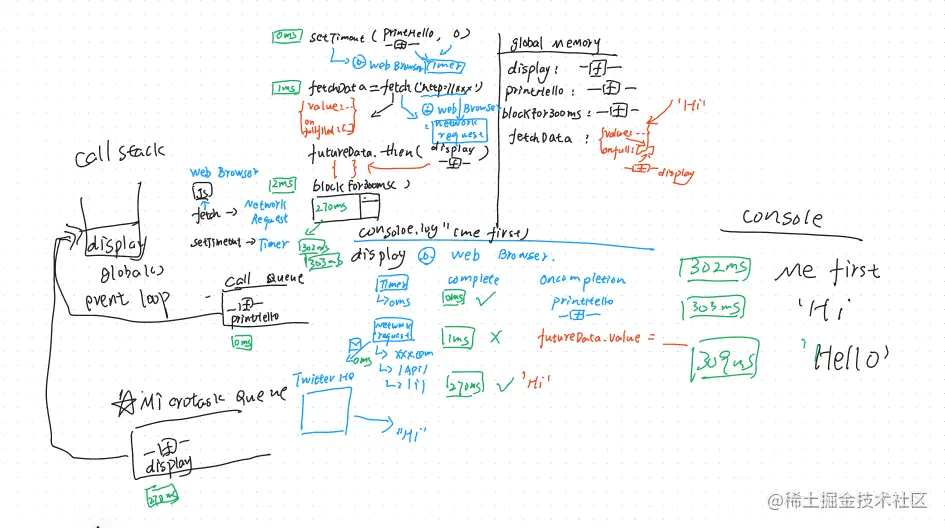 0ms setTimout (printHello, 0)
web Browser Timer
1ms fetchData = fetch('http://xxx')
{ value: --
on
fulfilled: [ ]
web Browser
network
request
futureData.then( display )
{ }
2ms blockfor300ms( )
270ms
302ms
303ms
console.log "(me first)
global memory
display: -f-
printHello: -f-
blockfor300ms: -f-
fetaData: {value: --
onfull: [ ]
"Hi"
display
call stack
display
global()
event loop
web Browser
JS
fetch → Network
Request
setTimeout → Timer
call queue
-f-
printHello
0ms
☆ Microtask queue
-f-
display
270ms
display web Browser.
Timer complete Oncompletion
↳ 0ms 0ms ✓ printHello
-f-
network
request 1ms X futureData.value = __
↳ xxx.com
0ms
270ms ✓ 'Hi'
Twitter HQ
"Hi"
console
302ms Me first
303ms 'Hi
309ms 'Hello'
@稀土掘金技术社区